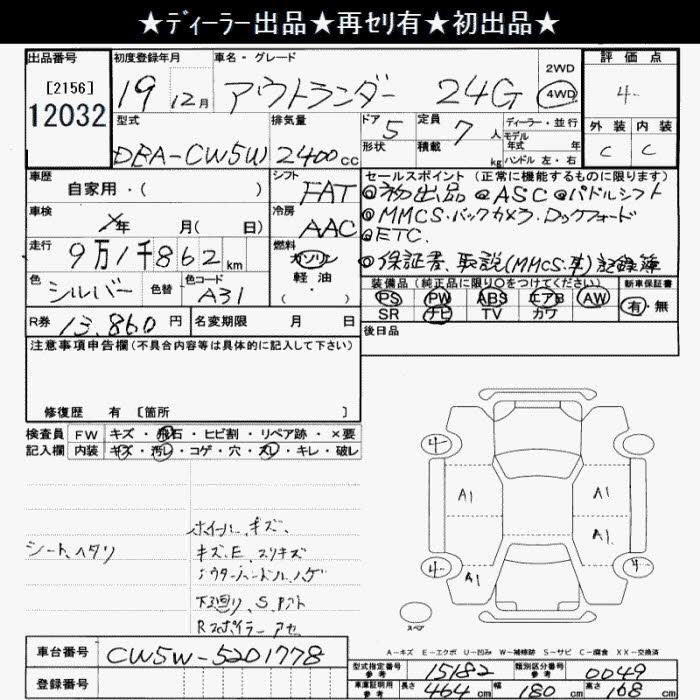 ★ディーラー出品★再セリ有★初出品★
出品番号
[2156]
12032
初度登録年月
19年 12月
車名・グレード
アウトランダー 24G
2WD
4WD
評価点
4
外装 内装
C C
型式
DBA-CW5W
排気量
2400cc
ドア 5
形状
定員 7人
積載 kg
ディーラー・並行
モデル
年式 年
ハンドル 左・右
車歴
自家用・( )
シフト
FAT
車検
年 月( 日)
冷房
AAC
走行
9万1千862km
燃料
ガソリン
軽・油
( )
色
シルバー
色替
色コード
A31
セールスポイント(正常に機能するものに限ります)
◎初出品 ◎ASC ◎パドルシフト
◎MMCS.バックカメラ.ロックフォード
◎ETC.
◎保証書、取説(MMCS.車)記録簿
装備品(純正品に限り○をつけてください)
PS PW ABS エアB AW
SR ナビ TV カワ
新車保証書
有・無
R券 13.860円
名変期限 月 日
後日品
注意事項申告欄(不具合内容等は具体的に記入して下さい)
修復歴 有 [箇所 ]
検査員 FW キズ・飛石・ヒビ割・リペア跡・×要
記入欄 内装 キズ・汚レ・コゲ・穴・スレ・キレ・破レ
シートヘタリ
ホイールキズ、
キズ、E、スリキズ
下廻り、S
Rスポイラー
4 4
A1 A1
A1
4 4
A1
スペア
A-キズ E-エクボ U-凹み W-補修跡 S-サビ C-腐食 XX-交換済
車台番号
CW5W-5201778
登録番号
型式指定番号
参考
15182
類別区分番号
参考
0049
車庫証明用
参考
長さ 464cm 幅 180cm 高さ 168cm